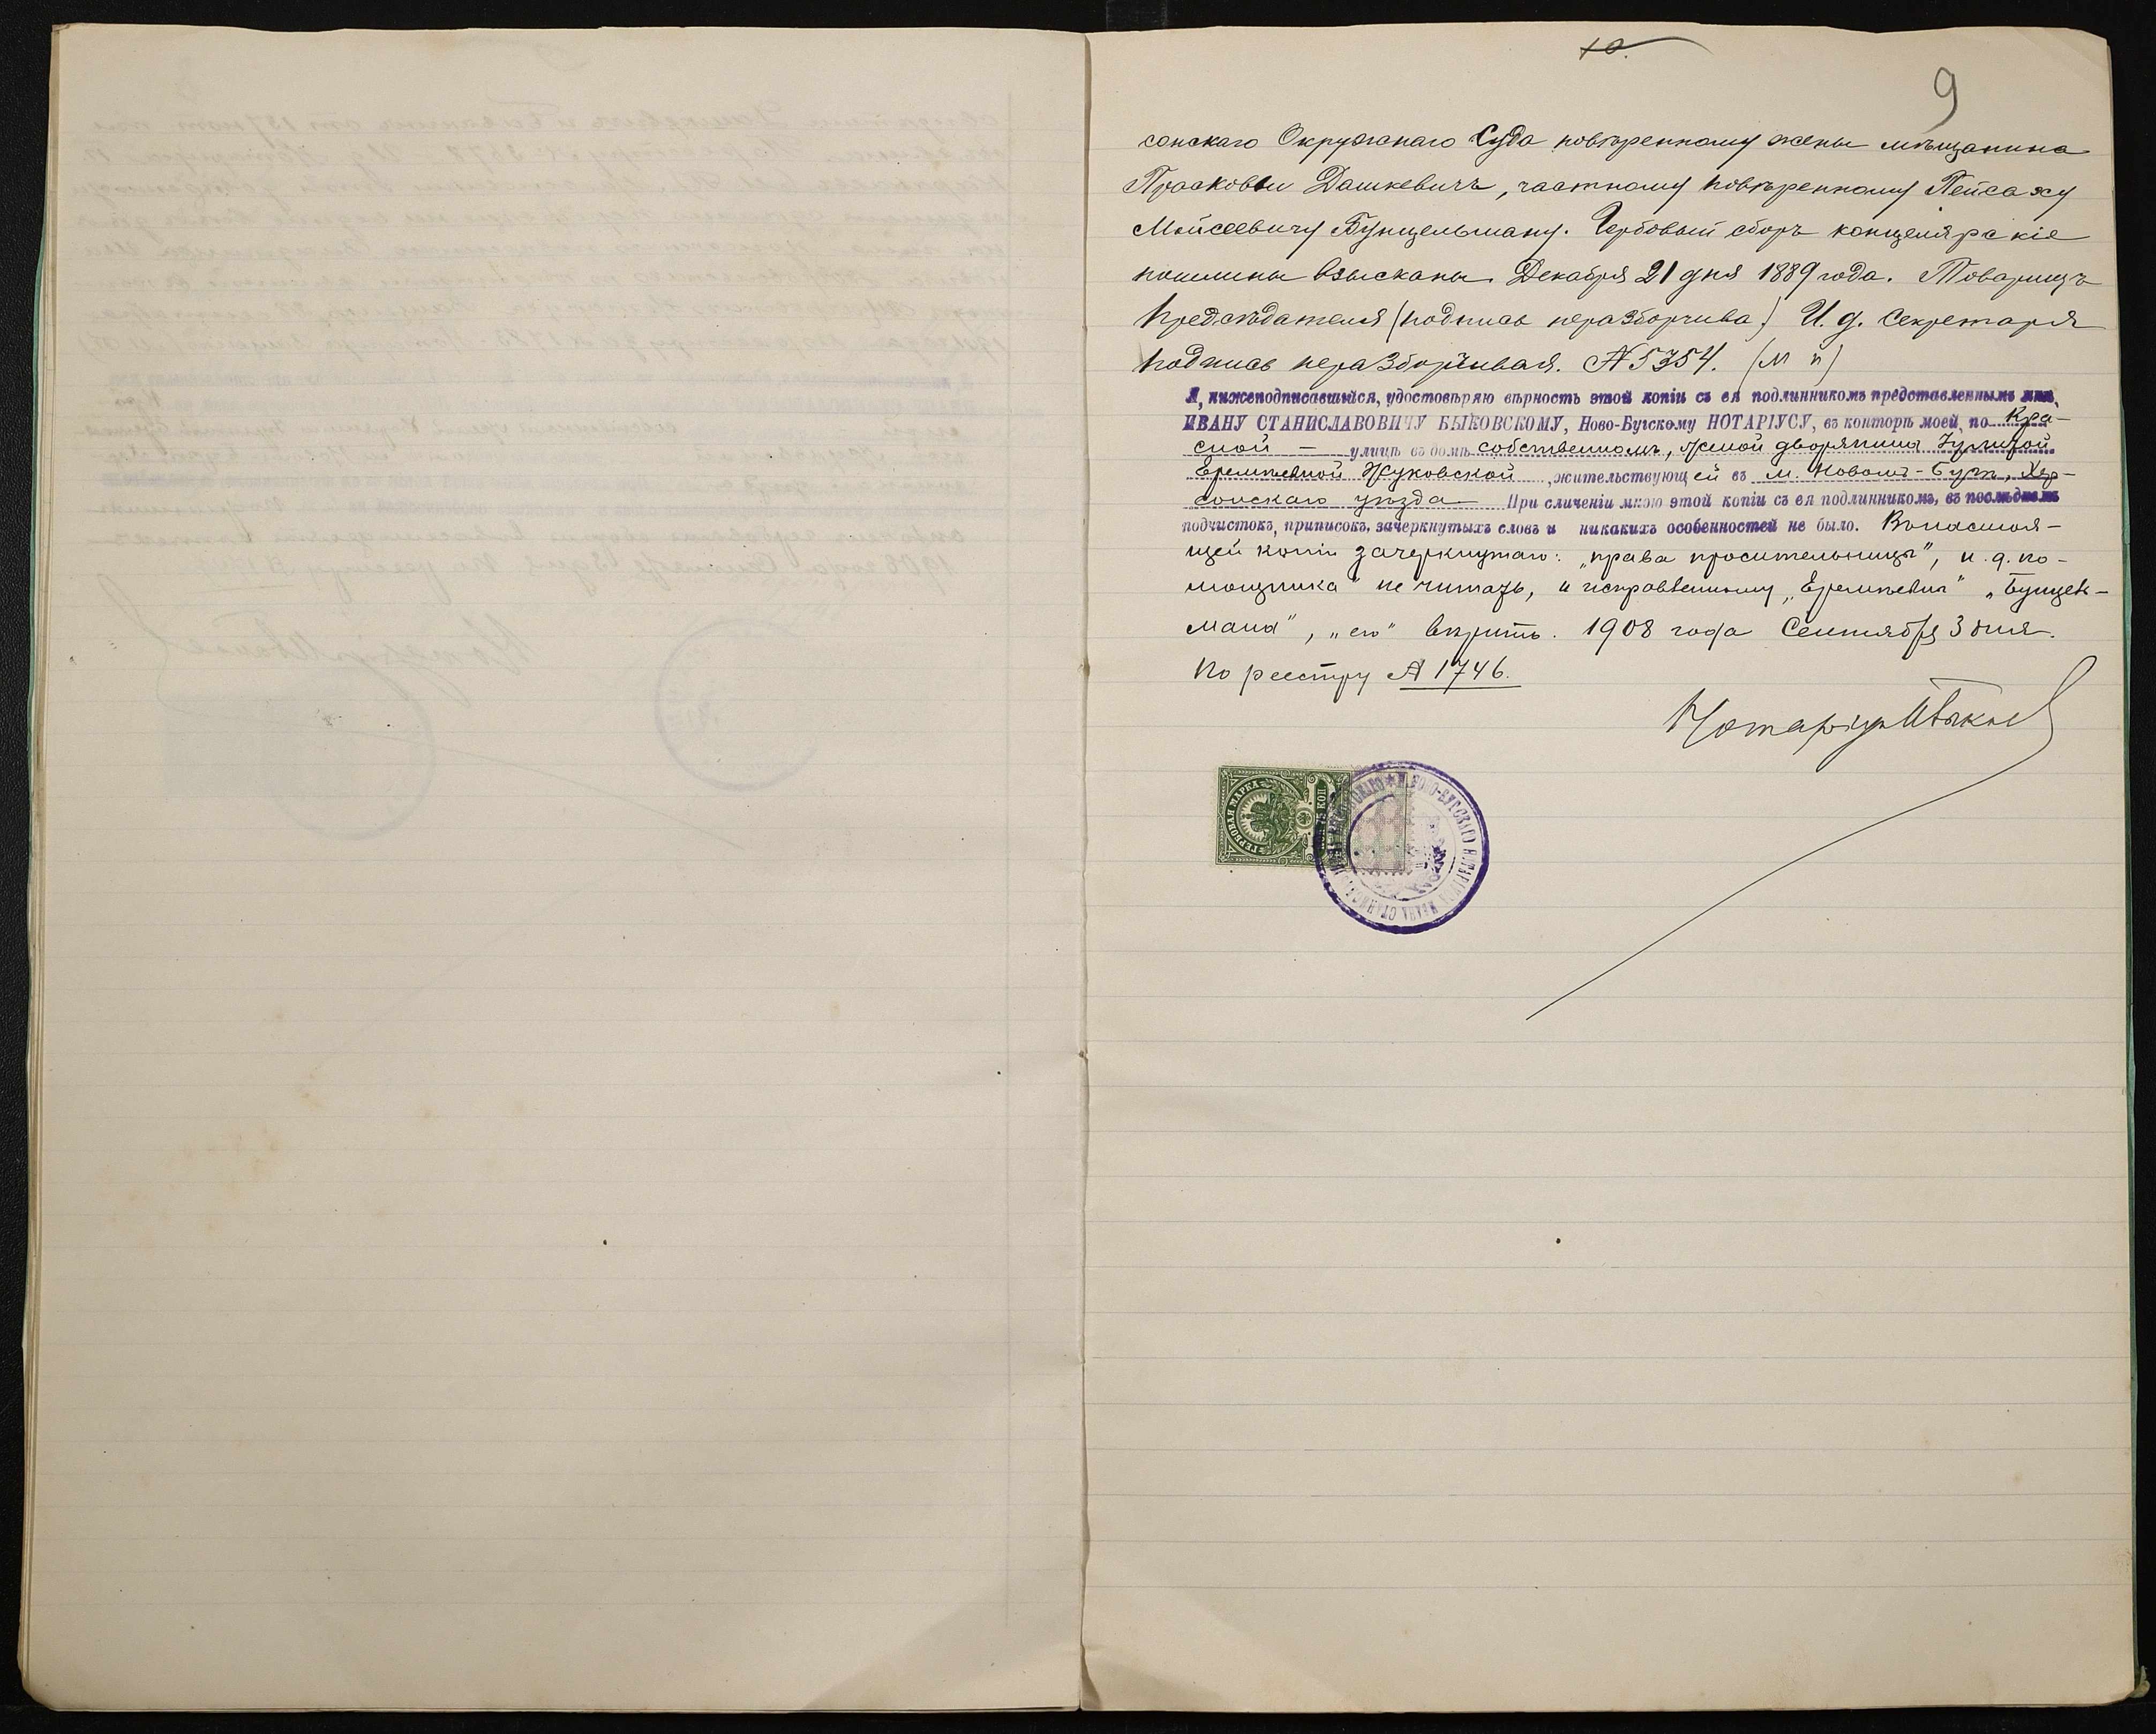 10.
9
сонскаго Окружнаго Суда повѣренному жены мѣщанина
Прасковьи Дашкевичъ, частному повѣренному Пейсаху
Мойсеевичу Бунцельману. Гербовый сборъ канцелярскіе
пошлины взысканы. Декабря 21 дня 1889 года. Товарищъ
Предсѣдателя (подпись неразборчива) И. д. Секретаря
подпись неразборчивая. № 5354. (М п)
Я, нижеподписавшійся, удостовѣряю вѣрность этой копіи съ ея подлинникомъ представленнымъ мнѣ,
ИВАНУ СТАНИСЛАВОВИЧУ БЫКОВСКОМУ, Ново-Бугскому НОТАРІУСУ, въ конторѣ моей, по Кра-
сной — улицѣ въ домѣ собственномъ, женой дворянина
Еремѣевной Жуковской, жительствующей въ м. Новомъ-Бугѣ, Хер-
сонскаго уѣзда При сличеніи мною этой копіи съ ея подлинникомъ, въ послѣднемъ
подчистокъ, приписокъ, зачеркнутыхъ словъ и никакихъ особенностей не было. Въ настоя-
щей копіи зачеркнутаго: „права просительницы", и. д. по-
мощника" не читать, и исправленному „Еремѣевна" „Бунцель-
мана", „его" вѣрить. 1908 года Сентября 3 дня.
По реестру № 1746.
Нотаріусъ ИБыков
ГЕРБОВАЯ МАРКА
75 КОП
НОВО-БУГСКАГО НОТАРІУСА ИВАНА СТАНИСЛ